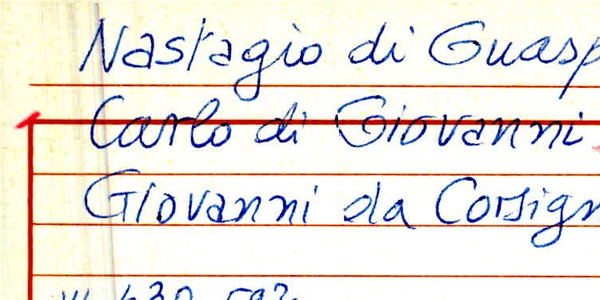 Nastagio di Guasp
Carlo di Giovanni
Giovanni da Corsign